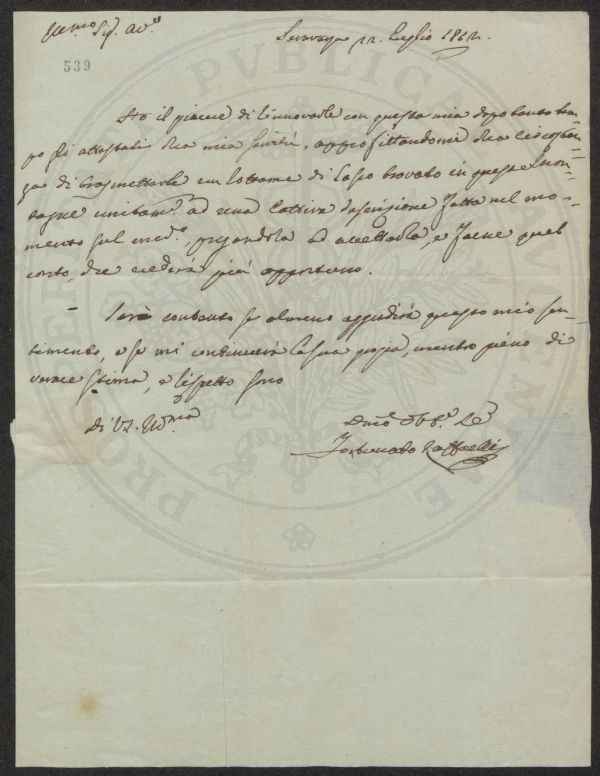 Ge.mo Sig. Av.o
Seravezza 22. Luglio 1862.
539
Ho il piacere di rinnovarle con questa mia dopo tanto tem=
po gli attestati della mia servitù, approfittandomi della circostan=
za di trasmetterle un rottame di vaso trovato in queste mon=
tagne unitam.e ad una cattiva descrizione fatta nel mo=
mento sul med.o, pregandola ad accettarla, e farne quel
conto, che crederà più opportuno.
Sarò contento se almeno aggradirà questo mio sen=
timento, e se mi continuerà la sua grazia, mentre pieno di
verace stima, e rispetto sono
Di V.S. Ill.ma
Dmo Obb.o Se.
Fortunato Raffaelli
PROSPERITAS PVBLICA